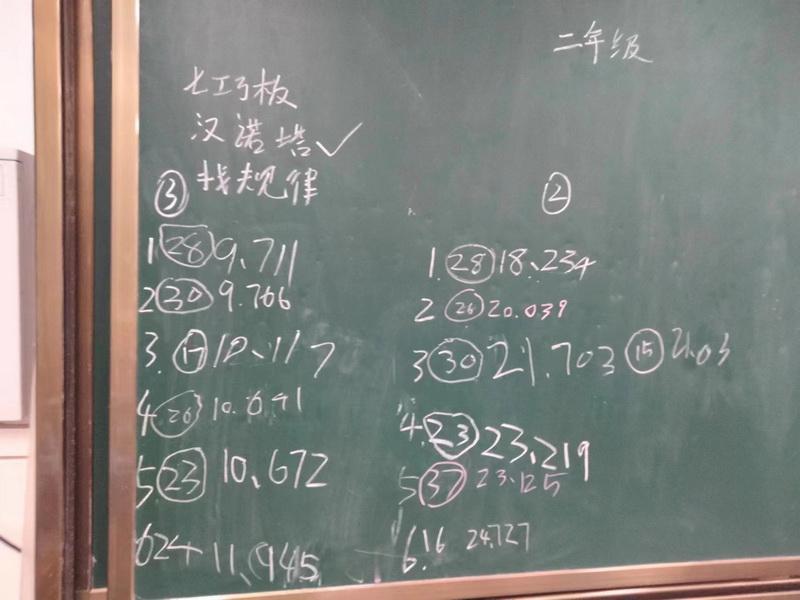 二年级
七巧板
汉诺塔✓
③ 找规律
1 28 9.711
2 30 9.766
3. 17 10.117
4. 26
5 23 10.672
6 24 11.945
②
1. 28 18.234
2 26 20.039
3 30 21.703 15 21.03
4. 23 23.219
5 37 23.125
6. 16 24.727